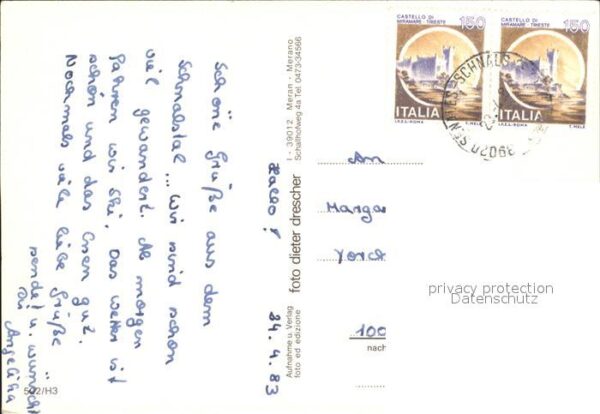 24. 4. 83
Hallo!
Schöne Grüße aus dem
Schnalstal... Wir sind schon
viel gewandert. Ab morgen
fahren wir Ski. Das Wetter ist
schön und das Essen gut.
Nochmals viele liebe Grüße
sendet u. wünscht
Dir
Angelika
502/H3
Aufnahme u. Verlag
foto ed edizione
foto dieter drescher
I - 39012 Meran - Merano
Schallhofweg 4a Tel. 0473-34566
CASTELLO DI
MIRAMARE - TRIESTE
150
ITALIA
I.P.Z.S.-ROMA
T. MELE
CASTELLO DI
MIRAMARE - TRIESTE
150
ITALIA
I.P.Z.S.-ROMA
T. MELE
SCHNALS
39020
An
Marga
Yorck
100
nach
privacy protection
Datenschutz